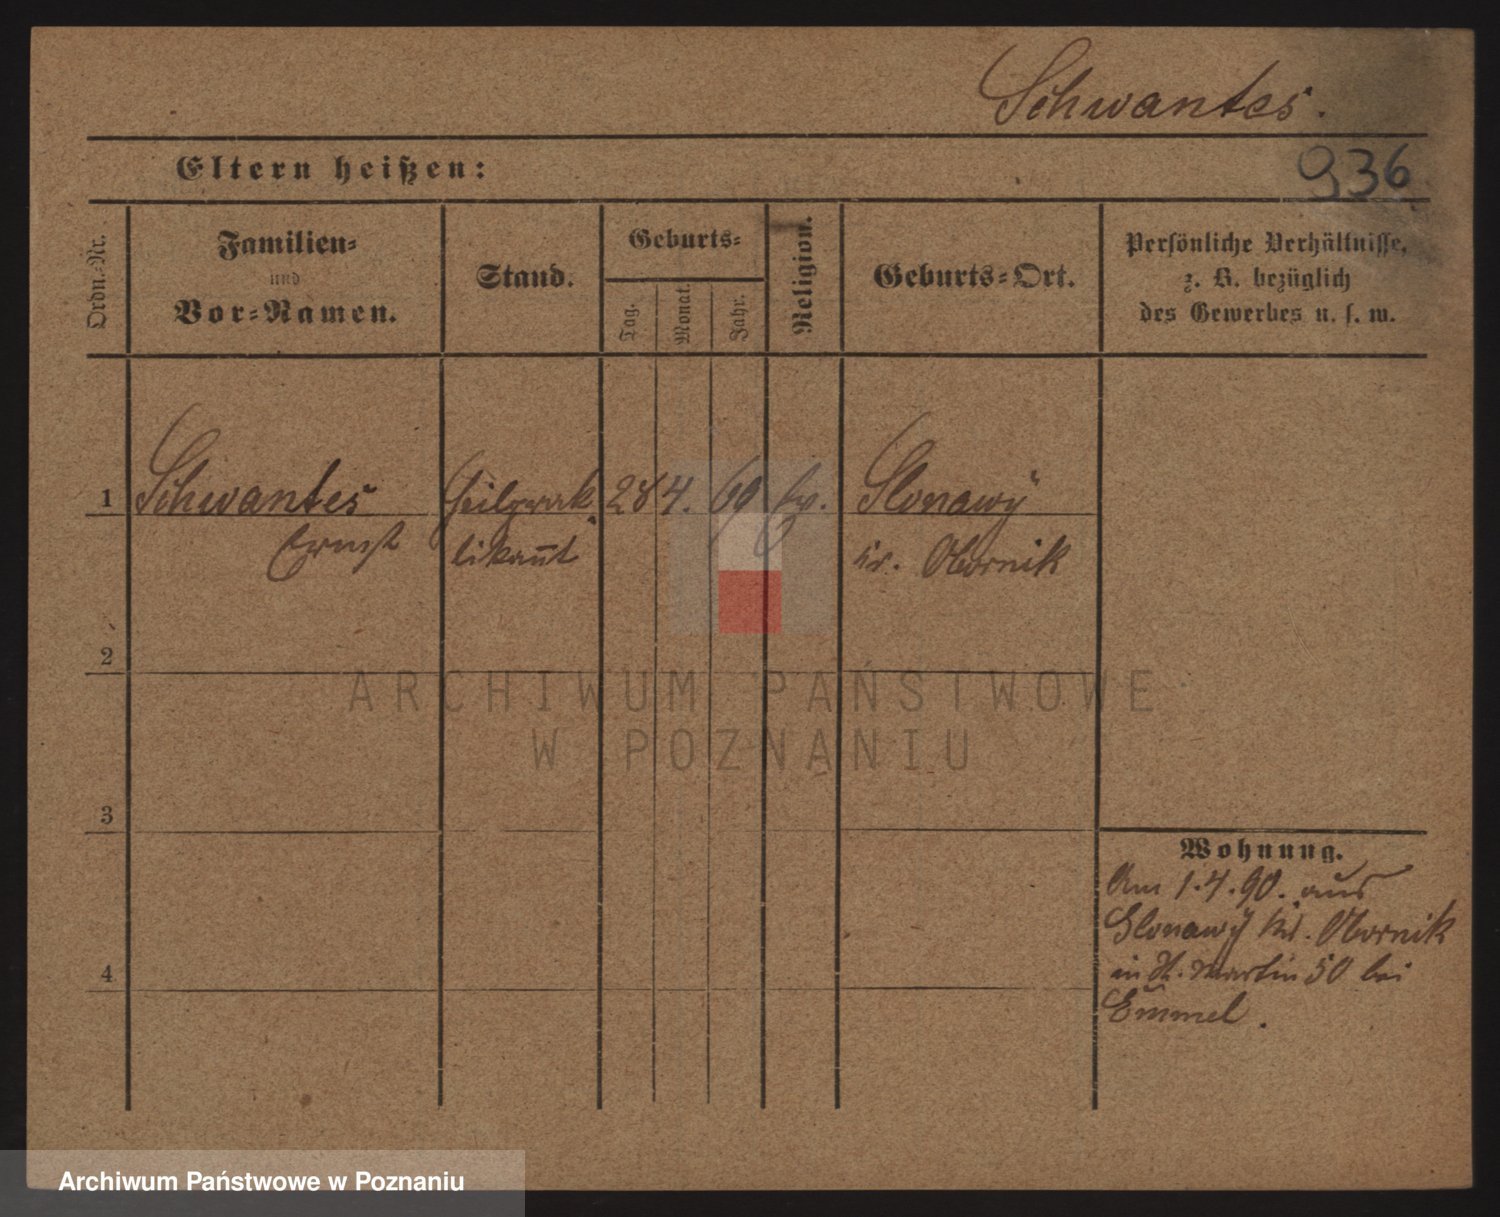 Schwantes.
936
Eltern heißen:
Ordn.-Nr.
Familien-
und
Vor-Namen.
Stand.
Geburts-
Tag.
Monat.
Jahr.
Religion.
Geburts-Ort.
Persönliche Verhältnisse,
z. B. bezüglich
des Gewerbes u. s. w.
1 Schwantes 28 4. ev. Slonawÿ
Ernst Kr. Obornik
2
3
4
ARCHIWUM PAŃSTWOWE
W POZNANIU
Wohnung.
Am 1.4.90. aus
Slonawÿ Kr. Obornik
in St. Martin 50 bei
Emmel.
Archiwum Państwowe w Poznaniu